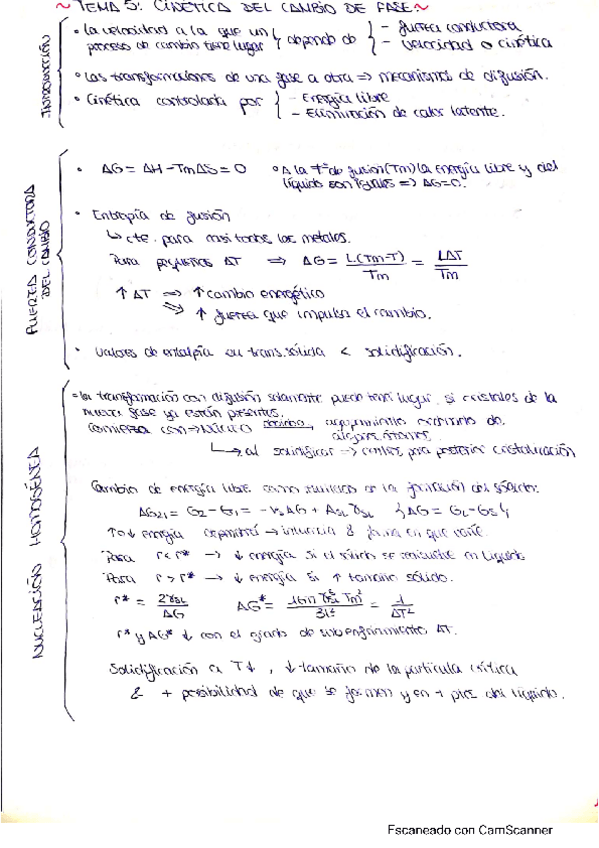 ~ TEMA 5: CINÉTICA DEL CAMBIO DE FASE. ~
INTRODUCCIÓN
• La velocidad a la que un proceso de cambio tiene lugar } depende de { - fuerza conductora
- velocidad o cinética
• Las transformaciones de una fase a otra => mecanismos de difusión.
• Cinética controlada por { - Energía libre
- Eliminación de calor latente.
FUERZA CONDUCTORA DEL CAMBIO
• ΔG = ΔH - TmΔS = 0 • A la Tª de fusión (Tm) la energía libre y del
líquido son iguales => ΔG=0.
• Entropía de fusión
↳ cte. para casi todos los metales.
Para pequeños ΔT => ΔG = L(Tm-T)/Tm = LΔT/Tm
↑ ΔT => ↑ cambio energético
=> ↑ fuerza que impulsa el cambio.
• Valores de entalpía en trans. sólida < solidificación.
NUCLEACIÓN HOMOGÉNEA
• La transformación con difusión solamente puede tener lugar si cristales de la
nueva fase ya están presentes.
Comienza con → núcleo, agrupamiento de
algunos átomos
↳ al solidificar → centros para posterior cristalización
Cambio de energía libre como resultado de la formación del sólido:
ΔG21 = G2 - G1 = -VsΔG + ASL γSL } ΔG = GL - GS {
↑ o ↓ energía → influencia & forma en que varíe.
Para r < r* → ↓ energía si el sólido se redisuelve en líquido
Para r > r* → ↓ energía si ↑ tamaño sólido.
r* = 2γSL/ΔG ΔG* = 16π γSL³ Tm²/3L² = 1/ΔT²
r* y ΔG* ↓ con el grado de subenfriamiento ΔT.
Solidificación a T↓, ↓ tamaño de la partícula crítica
& + posibilidad de que se formen y en + ptos del líquido.
Escaneado con CamScanner